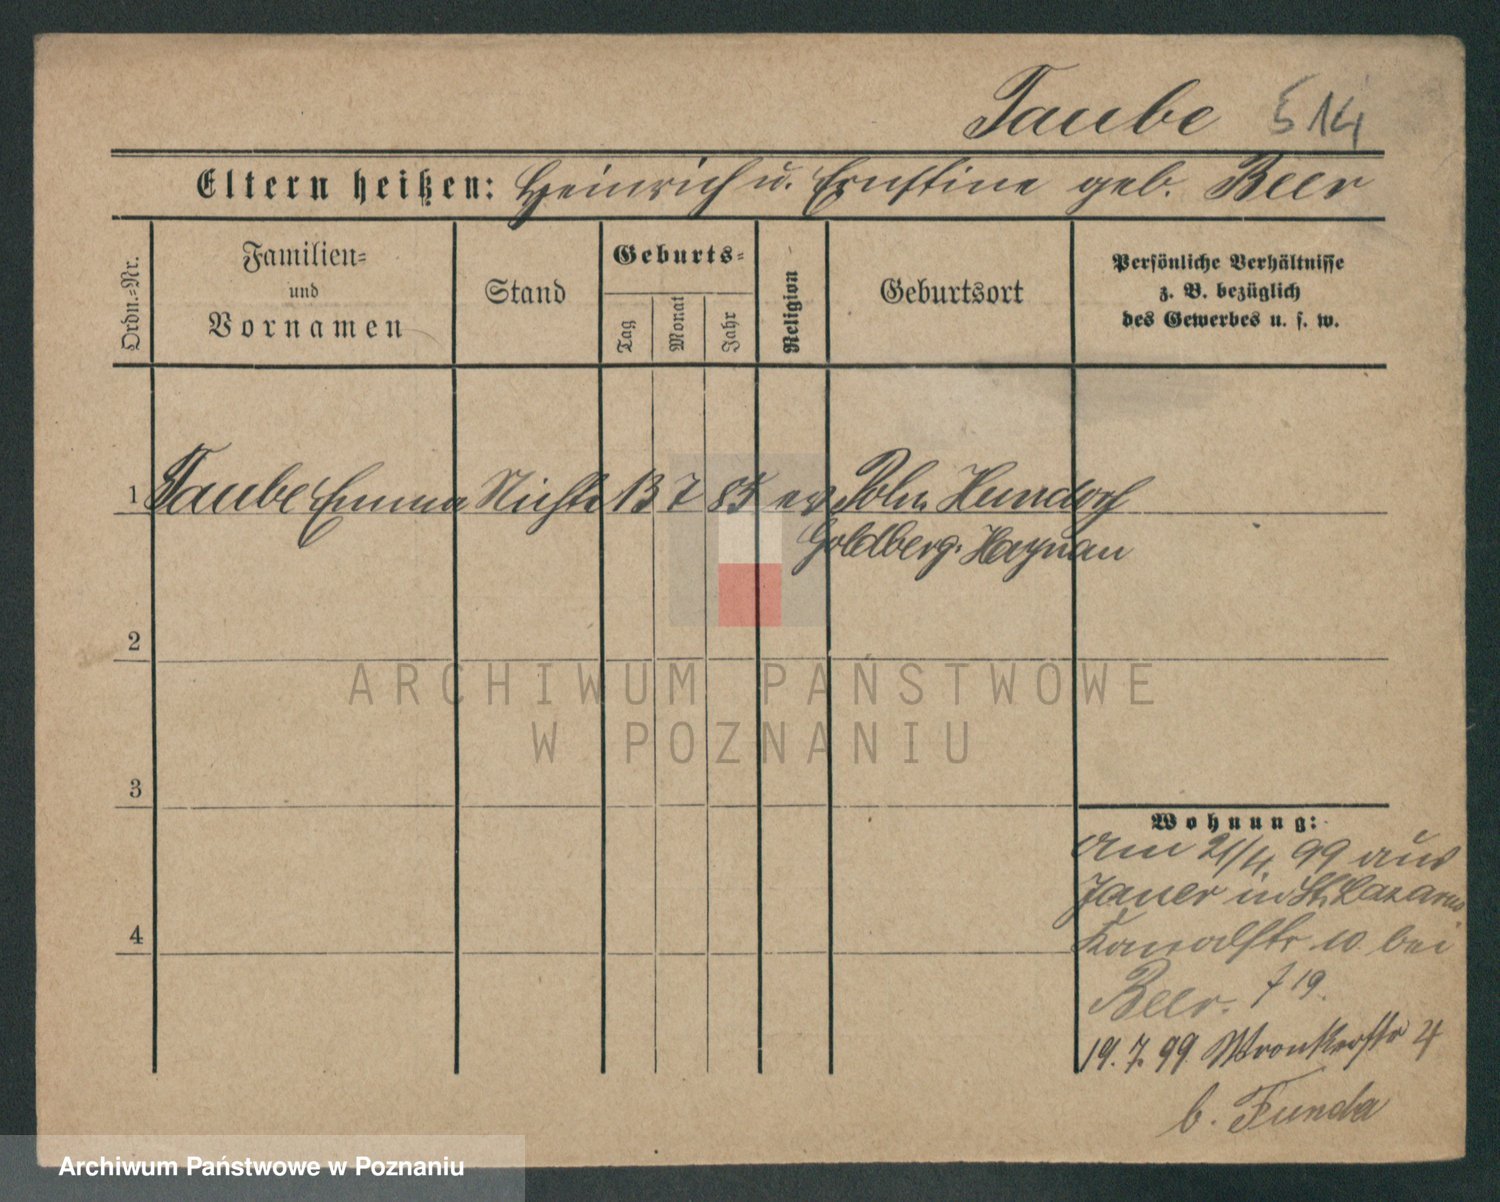 Taube 514
Eltern heißen: Heinrich u. Ernstine geb. Beer
Ordn.-Nr.
Familien-
und
Vornamen
Stand
Geburts-
Tag
Monat
Jahr
Religion
Geburtsort
Persönliche Verhältnisse
z. B. bezüglich
des Gewerbes u. s. w.
1 Taube Emma Nichte 13 7 85 ev Poln Hundorf
Goldberg. Haynau
2
3
4
Wohnung:
Am 21/4 99 aus
Jauer in St. Lazarus
Kanalstr 10 bei
Beer. 719.
19. 7. 99. Wronkerstr 4
b. Funda
ARCHIWUM PAŃSTWOWE
W POZNANIU
Archiwum Państwowe w Poznaniu